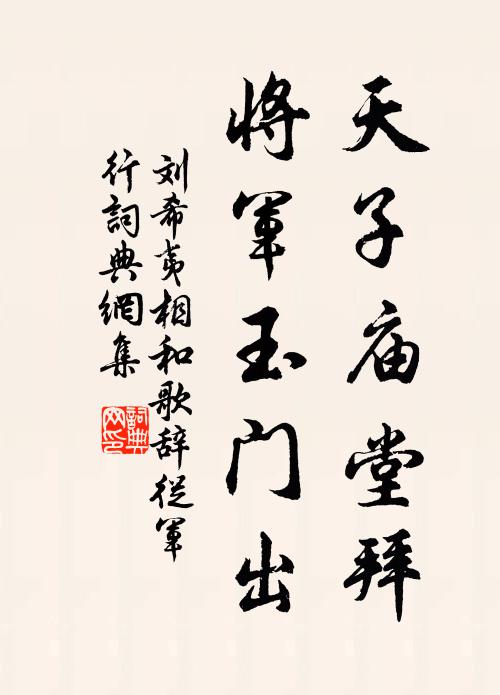 天子庙堂拜
将军玉门出
刘希夷相和歌辞从军
行词典網集
詞典网印